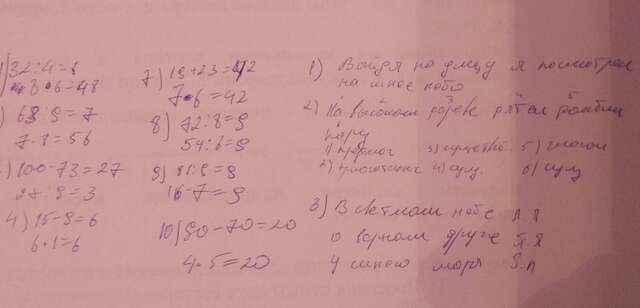 1) 32:4=8
8•6=48
63:9=7
7•8=56
3) 100-73=27
27:9=3
4) 15-9=6
6•1=6
7) 19+23=42
7•6=42
8) 72:8=9
54:6=9
9) 81:9=9
16-7=9
10) 90-70=20
4•5=20
1) Войдя на улицу я посмотрел
на синее небо
2) На высоком дереве дятел долбил
кору
1) предлог 3) существ. 5) глагол
2) прилагат 4) сущ. 6) сущ
3) В светлом небе П.п
о верном друге П.п
у синего моря Р.п